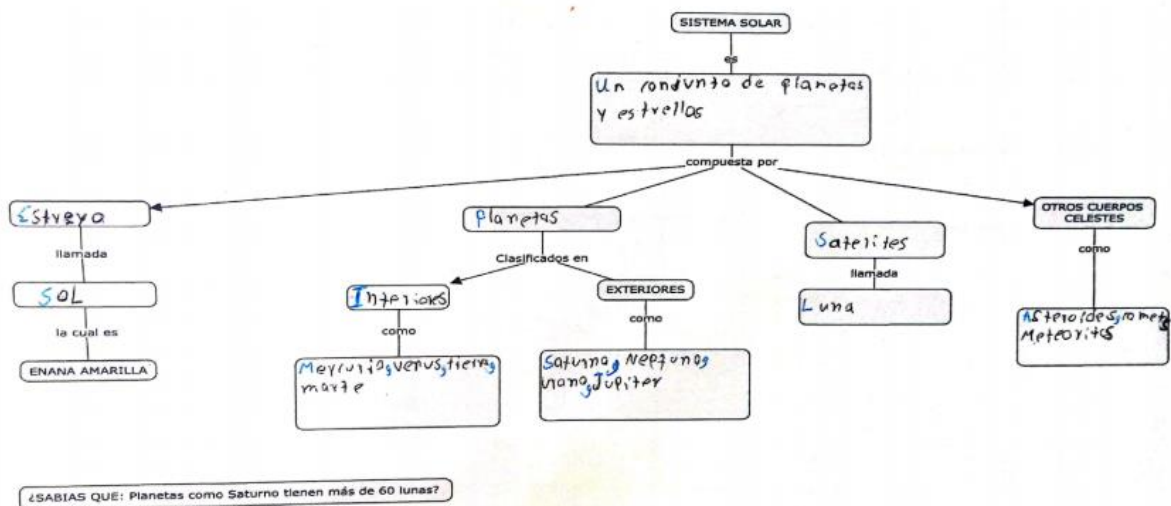 SISTEMA SOLAR
es
Un conjunto de planetas
y estrellas
compuesta por
Estreya
llamada
SOL
la cual es
ENANA AMARILLA
Planetas
Clasificados en
Interiores
como
Mercurio, venus, tierra,
marte
EXTERIORES
como
Saturno, Neptuno,
urano, Jupiter
Satelites
llamada
Luna
OTROS CUERPOS
CELESTES
como
Asteroides, cometas
Meteoritos
¿SABIAS QUE: Planetas como Saturno tienen más de 60 lunas?